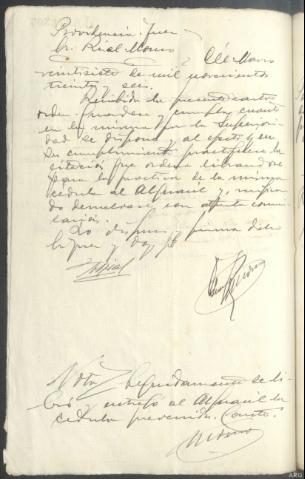 Providencia Juez
Sr. Rial Mouro
veintisiete de mil novecientos
treinta y seis.
Recibida la presente carta
orden, guardese y cumplase cuanto
en la misma por la superiori
dad se dispone, al efecto y en
su cumplimiento practiquese la
citación que ordena librandose
para la practica de la misma
cédula al Alguacil y,
devuelvase con atenta comuni
cación.
Lo dispuso y firma dicho
Sr. Juez y doy fé
Rial
Nota/ Seguidamente se li
bró y entregó al Alguacil la
cédula prevenida. Consto.